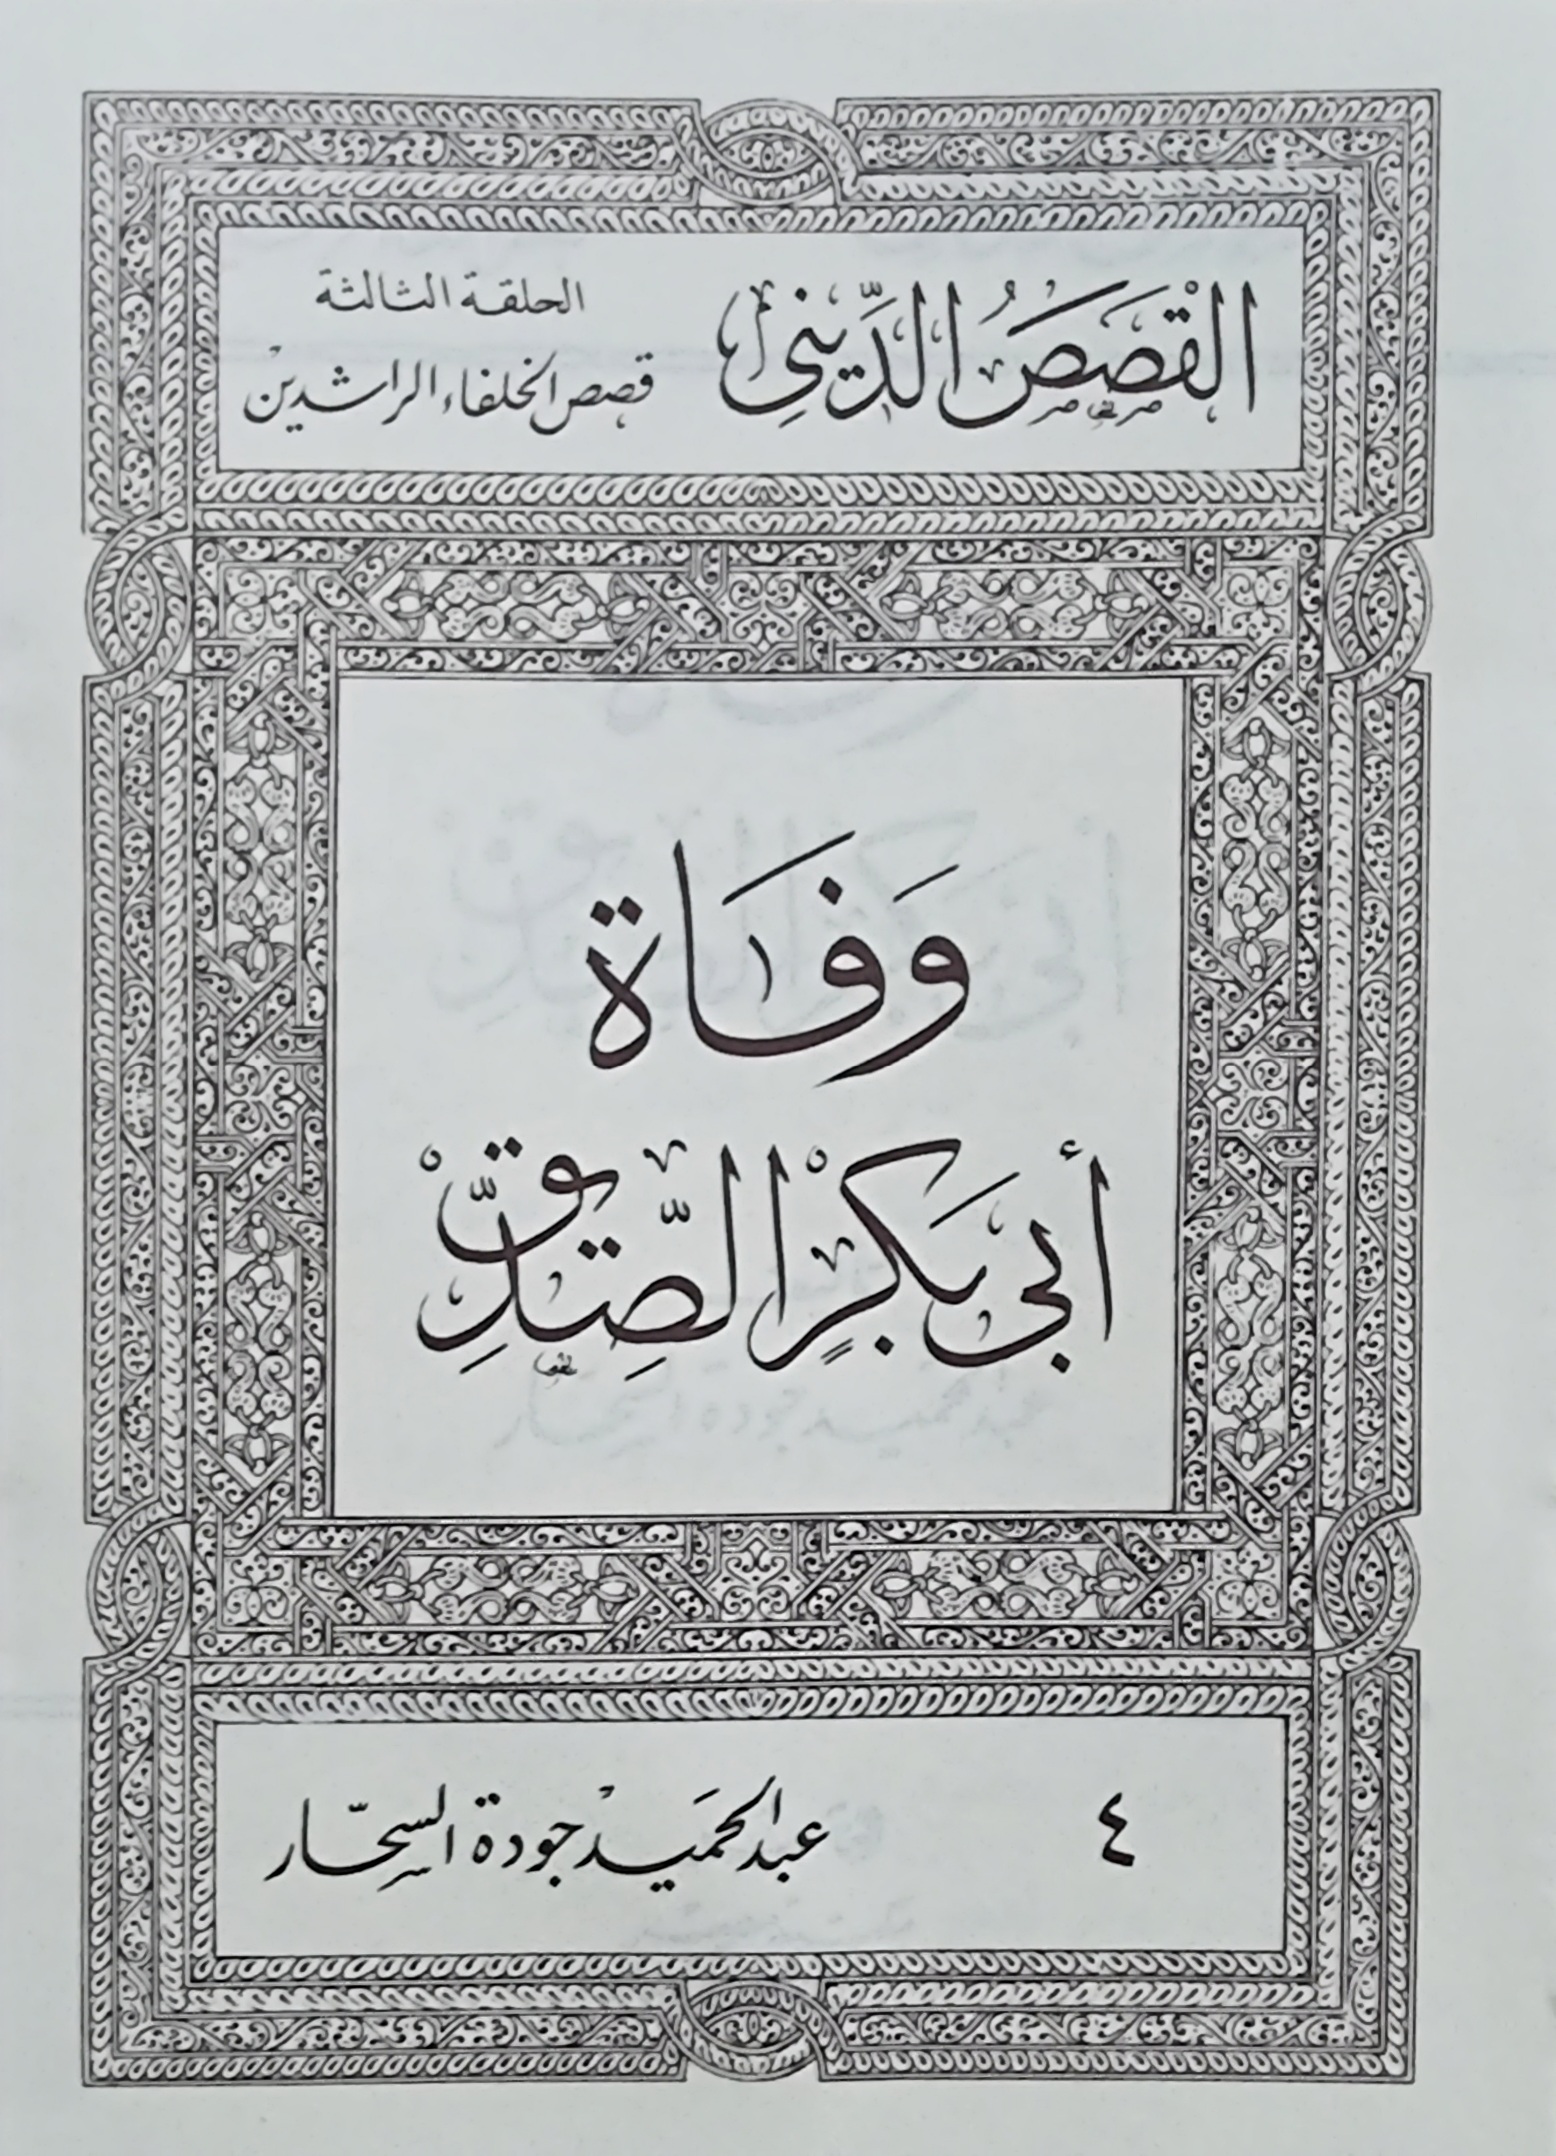 القَصَصُ الدِّينِي
الحلقة الثالثة
قصص الخلفاء الراشدين
وَفَاة
أبي بَكْرٍ الصِّدِّيقِ
٤
عبد الحَميد جودة السحّار